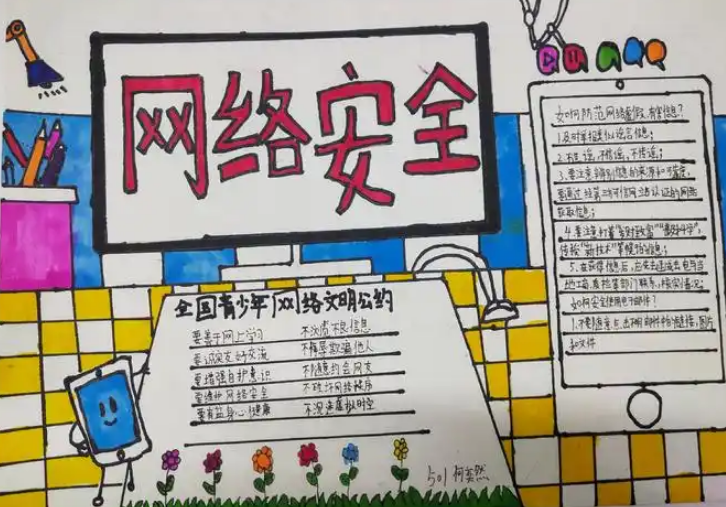 网络安全
全国青少年网络文明公约
要善于网上学习 不浏览不良信息
要诚实友好交流 不侮辱欺骗他人
要增强自护意识 不随意约会网友
要维护网络安全 不破坏网络秩序
要有益身心健康 不沉迷虚拟时空
501 柯奕然
如何防范网络虚假、有害信息?
1.及时举报类似谣言信息;
2.不造谣,不信谣,不传谣;
3.要注意辨别信息的来源和可靠度,
要通过经第三方可信网站认证的网站
获取信息;
4.要注意打着"发财致富""
传授""新技术"等幌子的信息;
5.在获得信息后,应先去函或去电与当
地工商、质检等部门联系,核实情况;
如何安全使用电子邮件?
1.不要随意点击不明邮件中的链接、图片
和文件